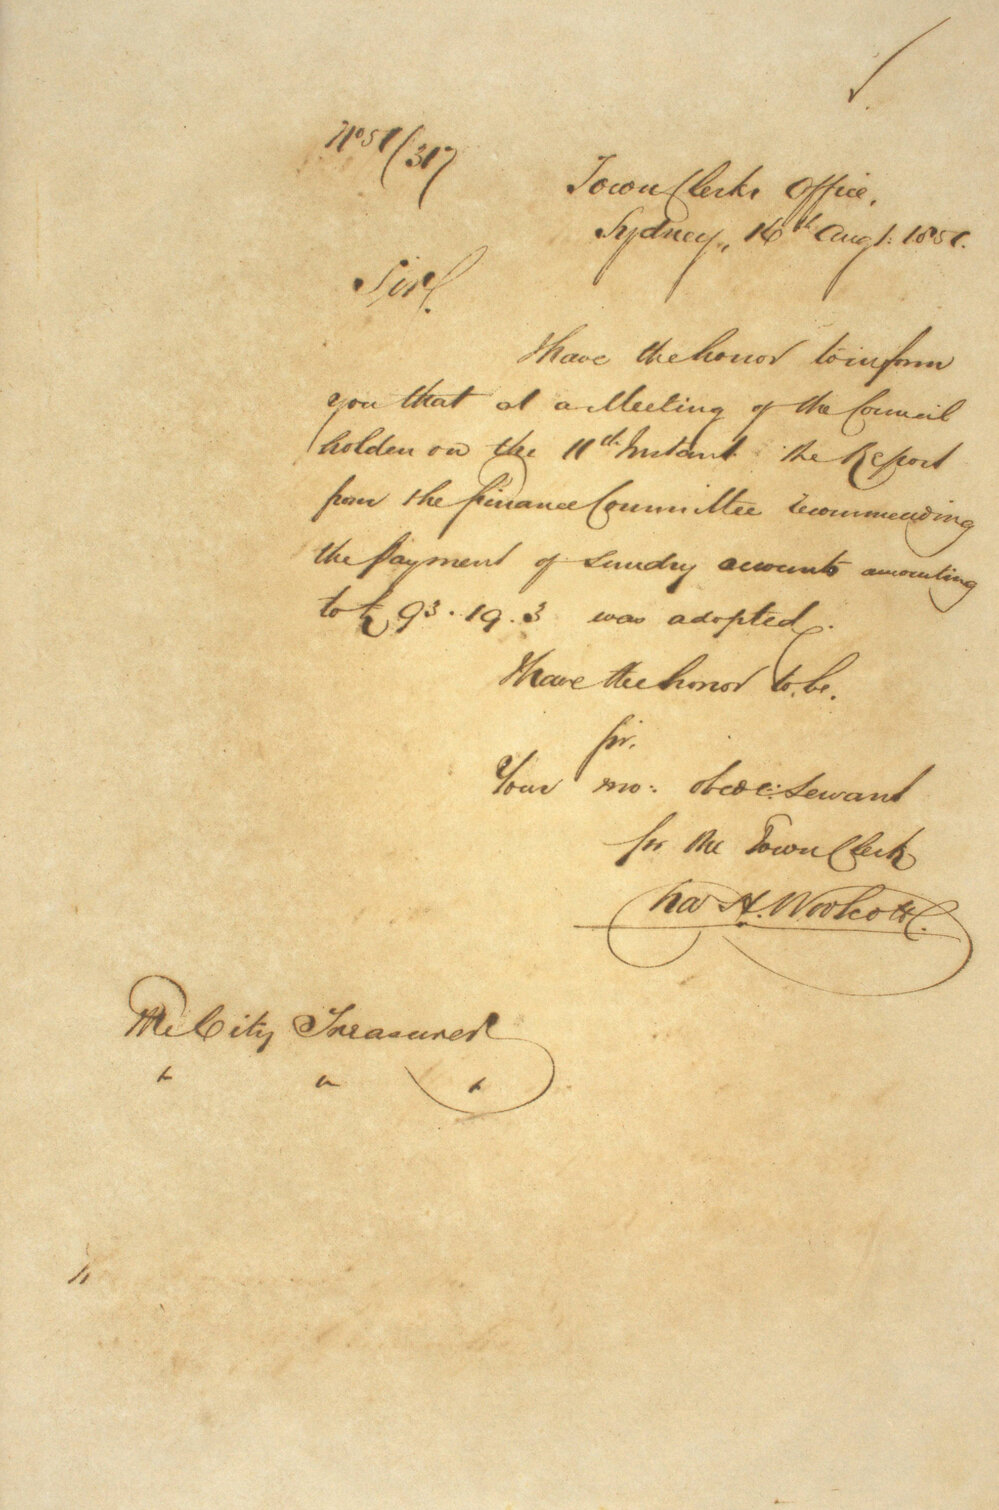 No 51/317
Town Clerks Office,
Sydney, 14th Augt: 1851.
Sir,
I have the honor to inform
you that at a Meeting of the Council
holden on the 11th Instant the Report
from the Finance Committee recommending
the payment of sundry accounts amounting
to £ 93.19.3 was adopted.
I have the honor to be.
Sir.
Your mo: obed: Servant
for the Town Clerk
Chas H. Woolcott.
The City Treasurer